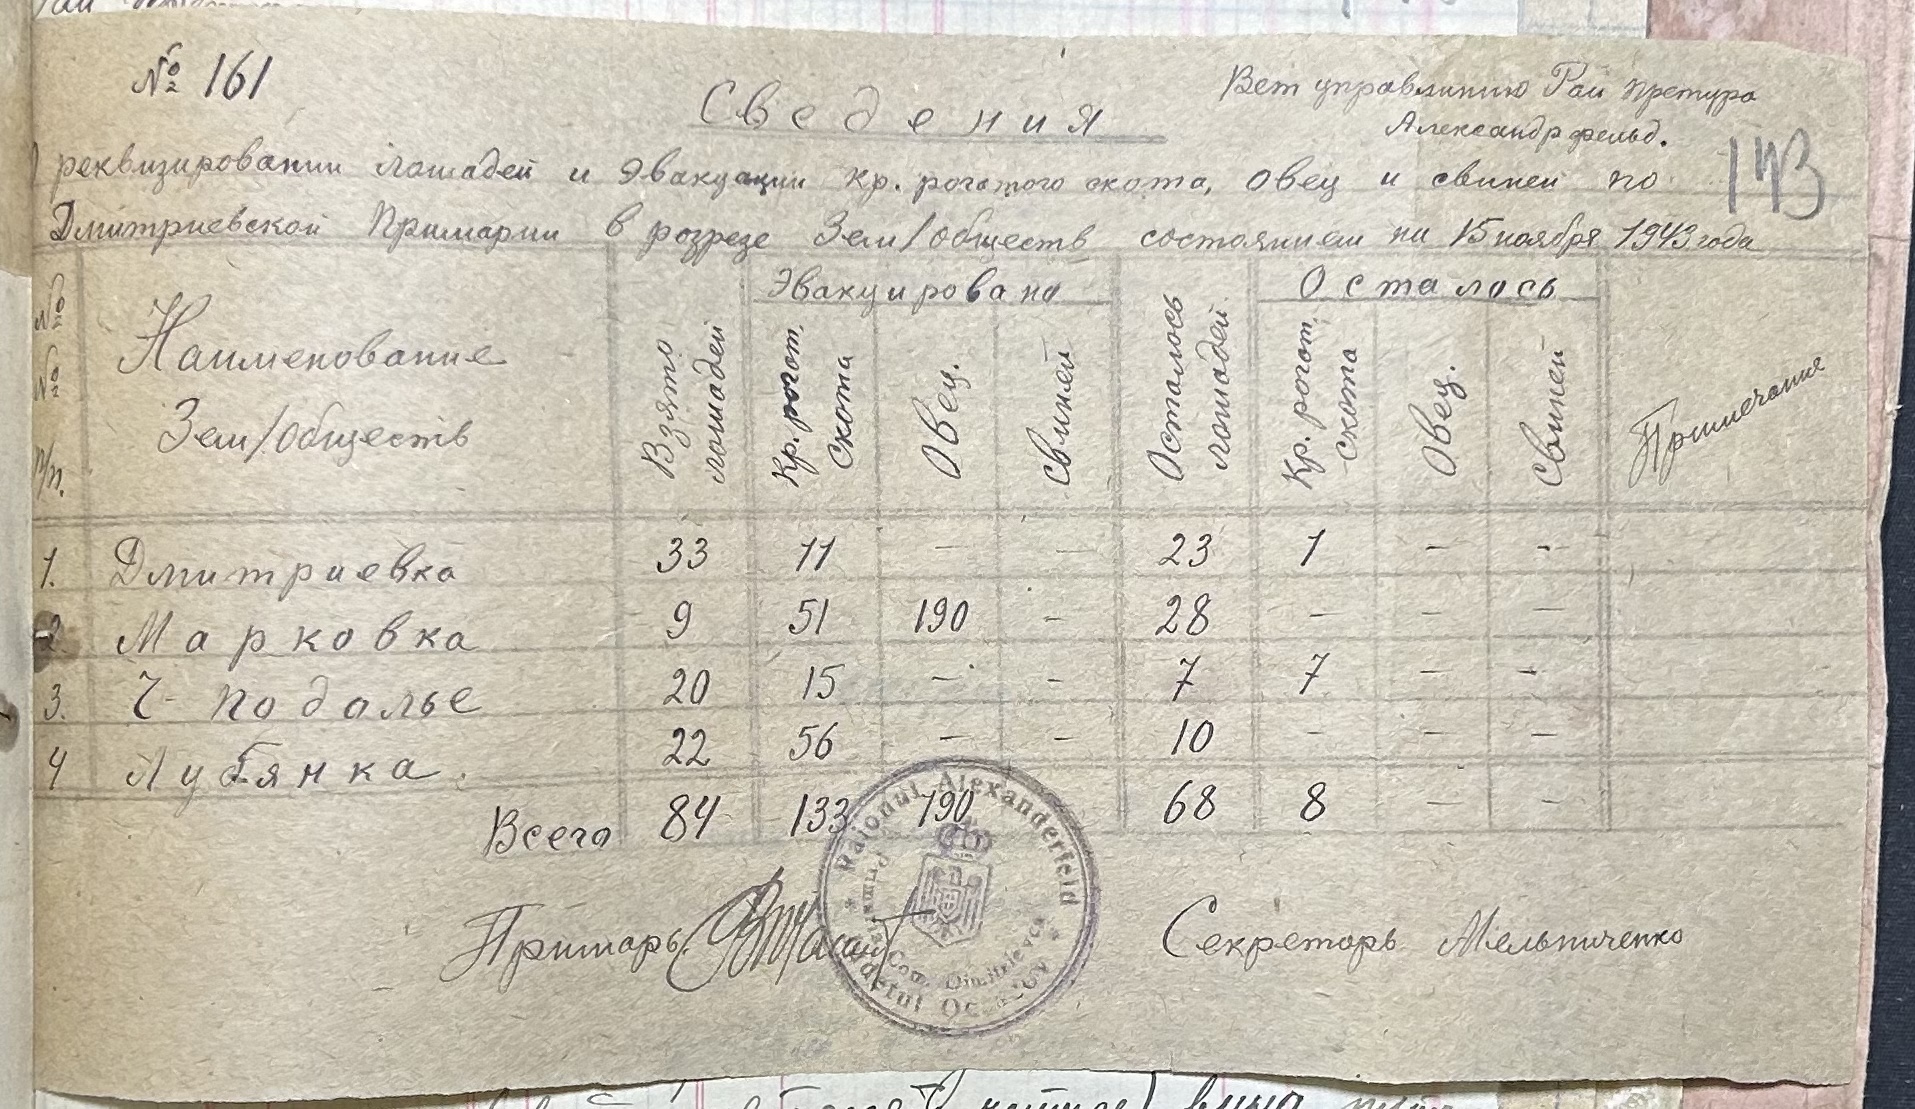 № 161
Сведения
Вет управлинию Рай претура
Александрфельд.
143
О реквизировании лошадей и эвакуации кр. рогатого скота, овец и свиней по
Дмитриевской Примарии в розрезе Зем/обществ состоянием на 15 ноября 1943 года
№ № п/п. Наименование Зем/обществ Взято лошадей Эвакуировано Кр. рогот. скота Овец. Свиней Осталось лошадей Осталось Кр. рогот. скота Овец. Свиней Примечание
1. Дмитриевка 33 11 – – 23 1 – –
2. Марковка 9 51 190 – 28 – – –
3. Ч- подолье 20 15 – – 7 7 – –
4 Лубянка. 22 56 – – 10 – – –
Всего 84 133 190 68 8 – –
Примарь
Секреторь Мельниченко
Raionul Alexanderfeld
Primaria
Com. Dimitrievca